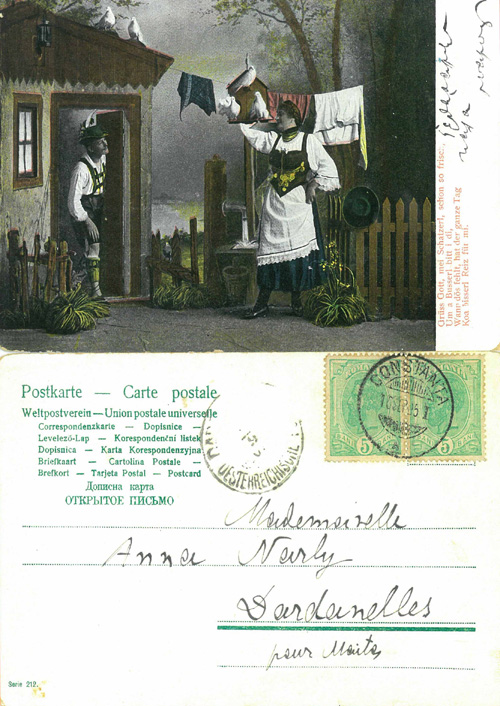 Grüss Gott, mei Schatzerl, schon so frisch,
Um a Busserl bitt i di,
Wann dös fehlt, hat der ganze Tag
Koa bisserl Reiz für mi.
Postkarte — Carte postale
Weltpostverein — Union postale universelle
Correspondenzkarte — Dopisnice —
Levelező-Lap — Korespondenční listek
Dopisnica — Karta Korespondenzyjna
Briefkaart — Cartolina Postale —
Brefkort — Tarjeta Postal — Postcard
Дописна карта
ОТКРЫТОЕ ПИСЬМО
OESTERREICHISCHE
CONSTANTA
5 BANI
BANI 5
Mademoiselle
Anna Narly
Dardanelles
pour Maïtos
Serie 212.